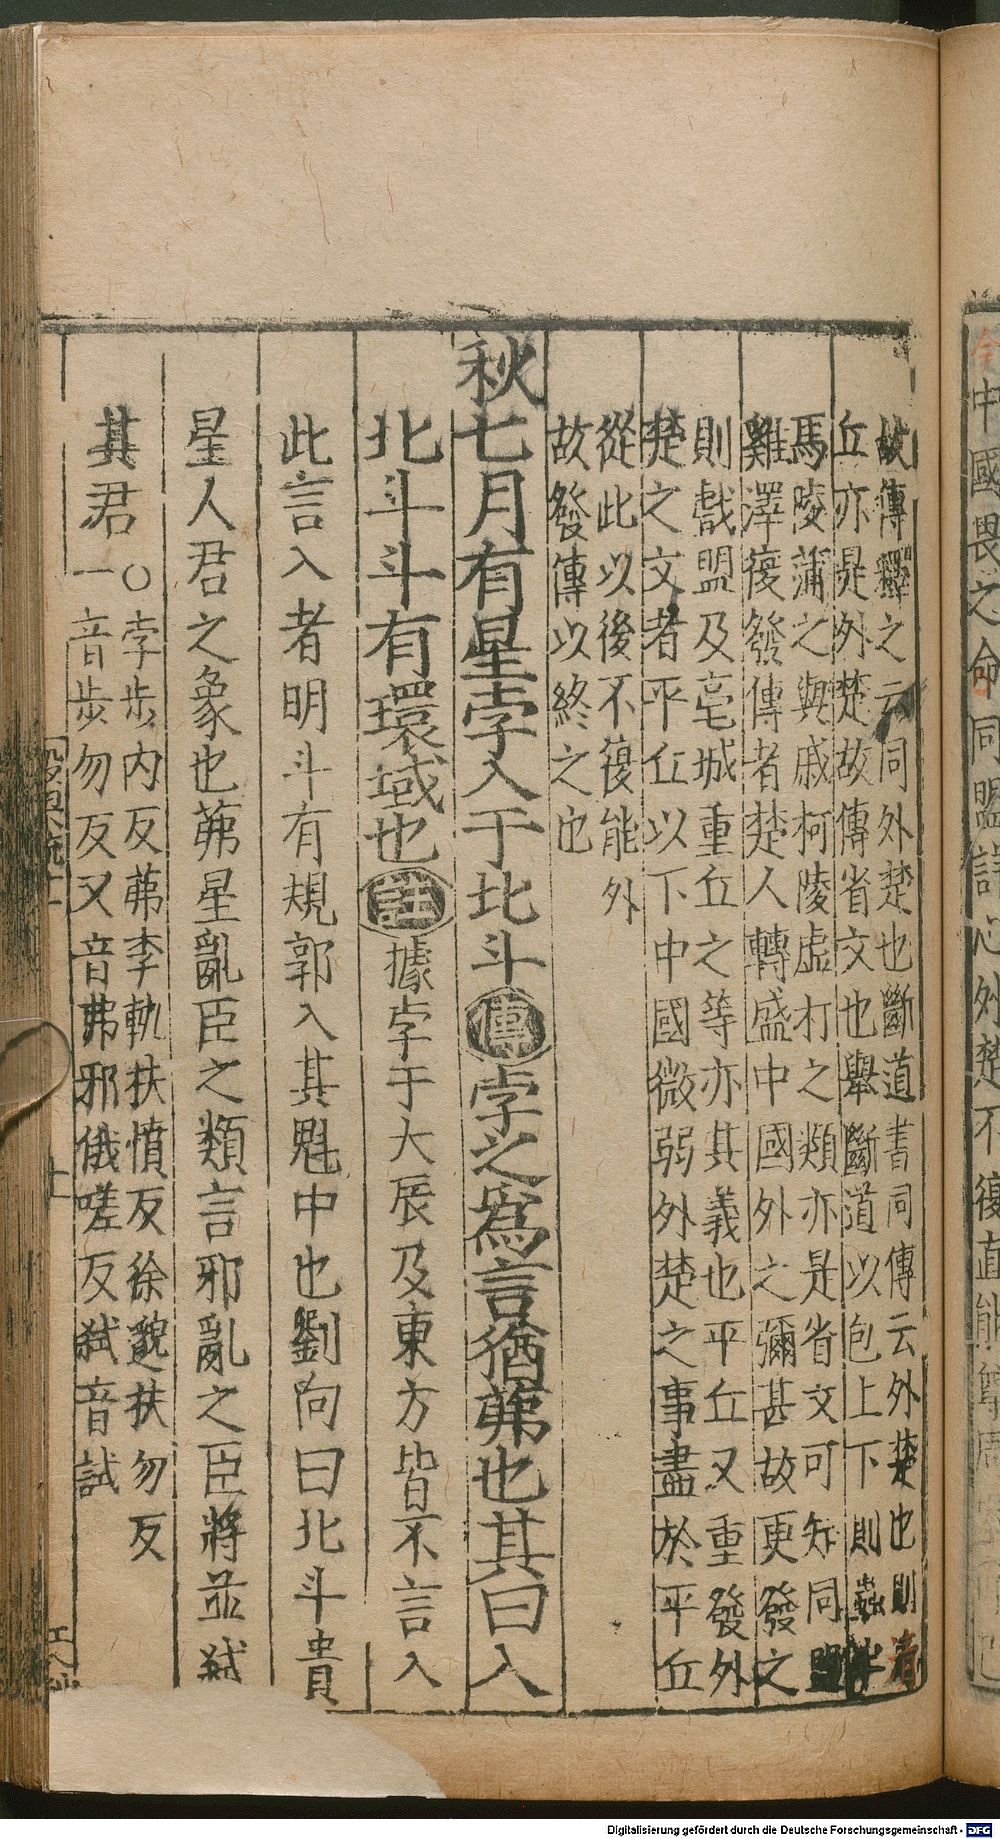 故傳釋之云同外楚也斷道書同傳云外楚也則清
丘亦是外楚故傳省文也舉斷道以包上下則蟲牢
馬陵蒲之與戚柯陵虛朾之類亦是省文可知同盟
雞澤復發傳者楚人轉盛中國外之彌甚故更發之
則戲盟及亳城重丘之等亦其義也平丘又重發外
楚之文者平丘以下中國微弱外楚之事盡於平丘
從此以後不復能外
故發傳以終之也
秋七月有星孛入于北斗傳孛之為言猶茀也其曰入
北斗斗有環域也註據孛于大辰及東方皆不言入
此言入者明斗有規郭入其魁中也劉向曰北斗貴
星人君之象也茀星亂臣之類言邪亂之臣將並弑
其君○孛步內反茀李軌扶憤反徐邈扶勿反
一音步勿反又音弗邪俄嗟反弑音試
十
中國畏之命同盟詳心外楚不復直能
Digitalisierung gefördert durch die Deutsche Forschungsgemeinschaft - DFG